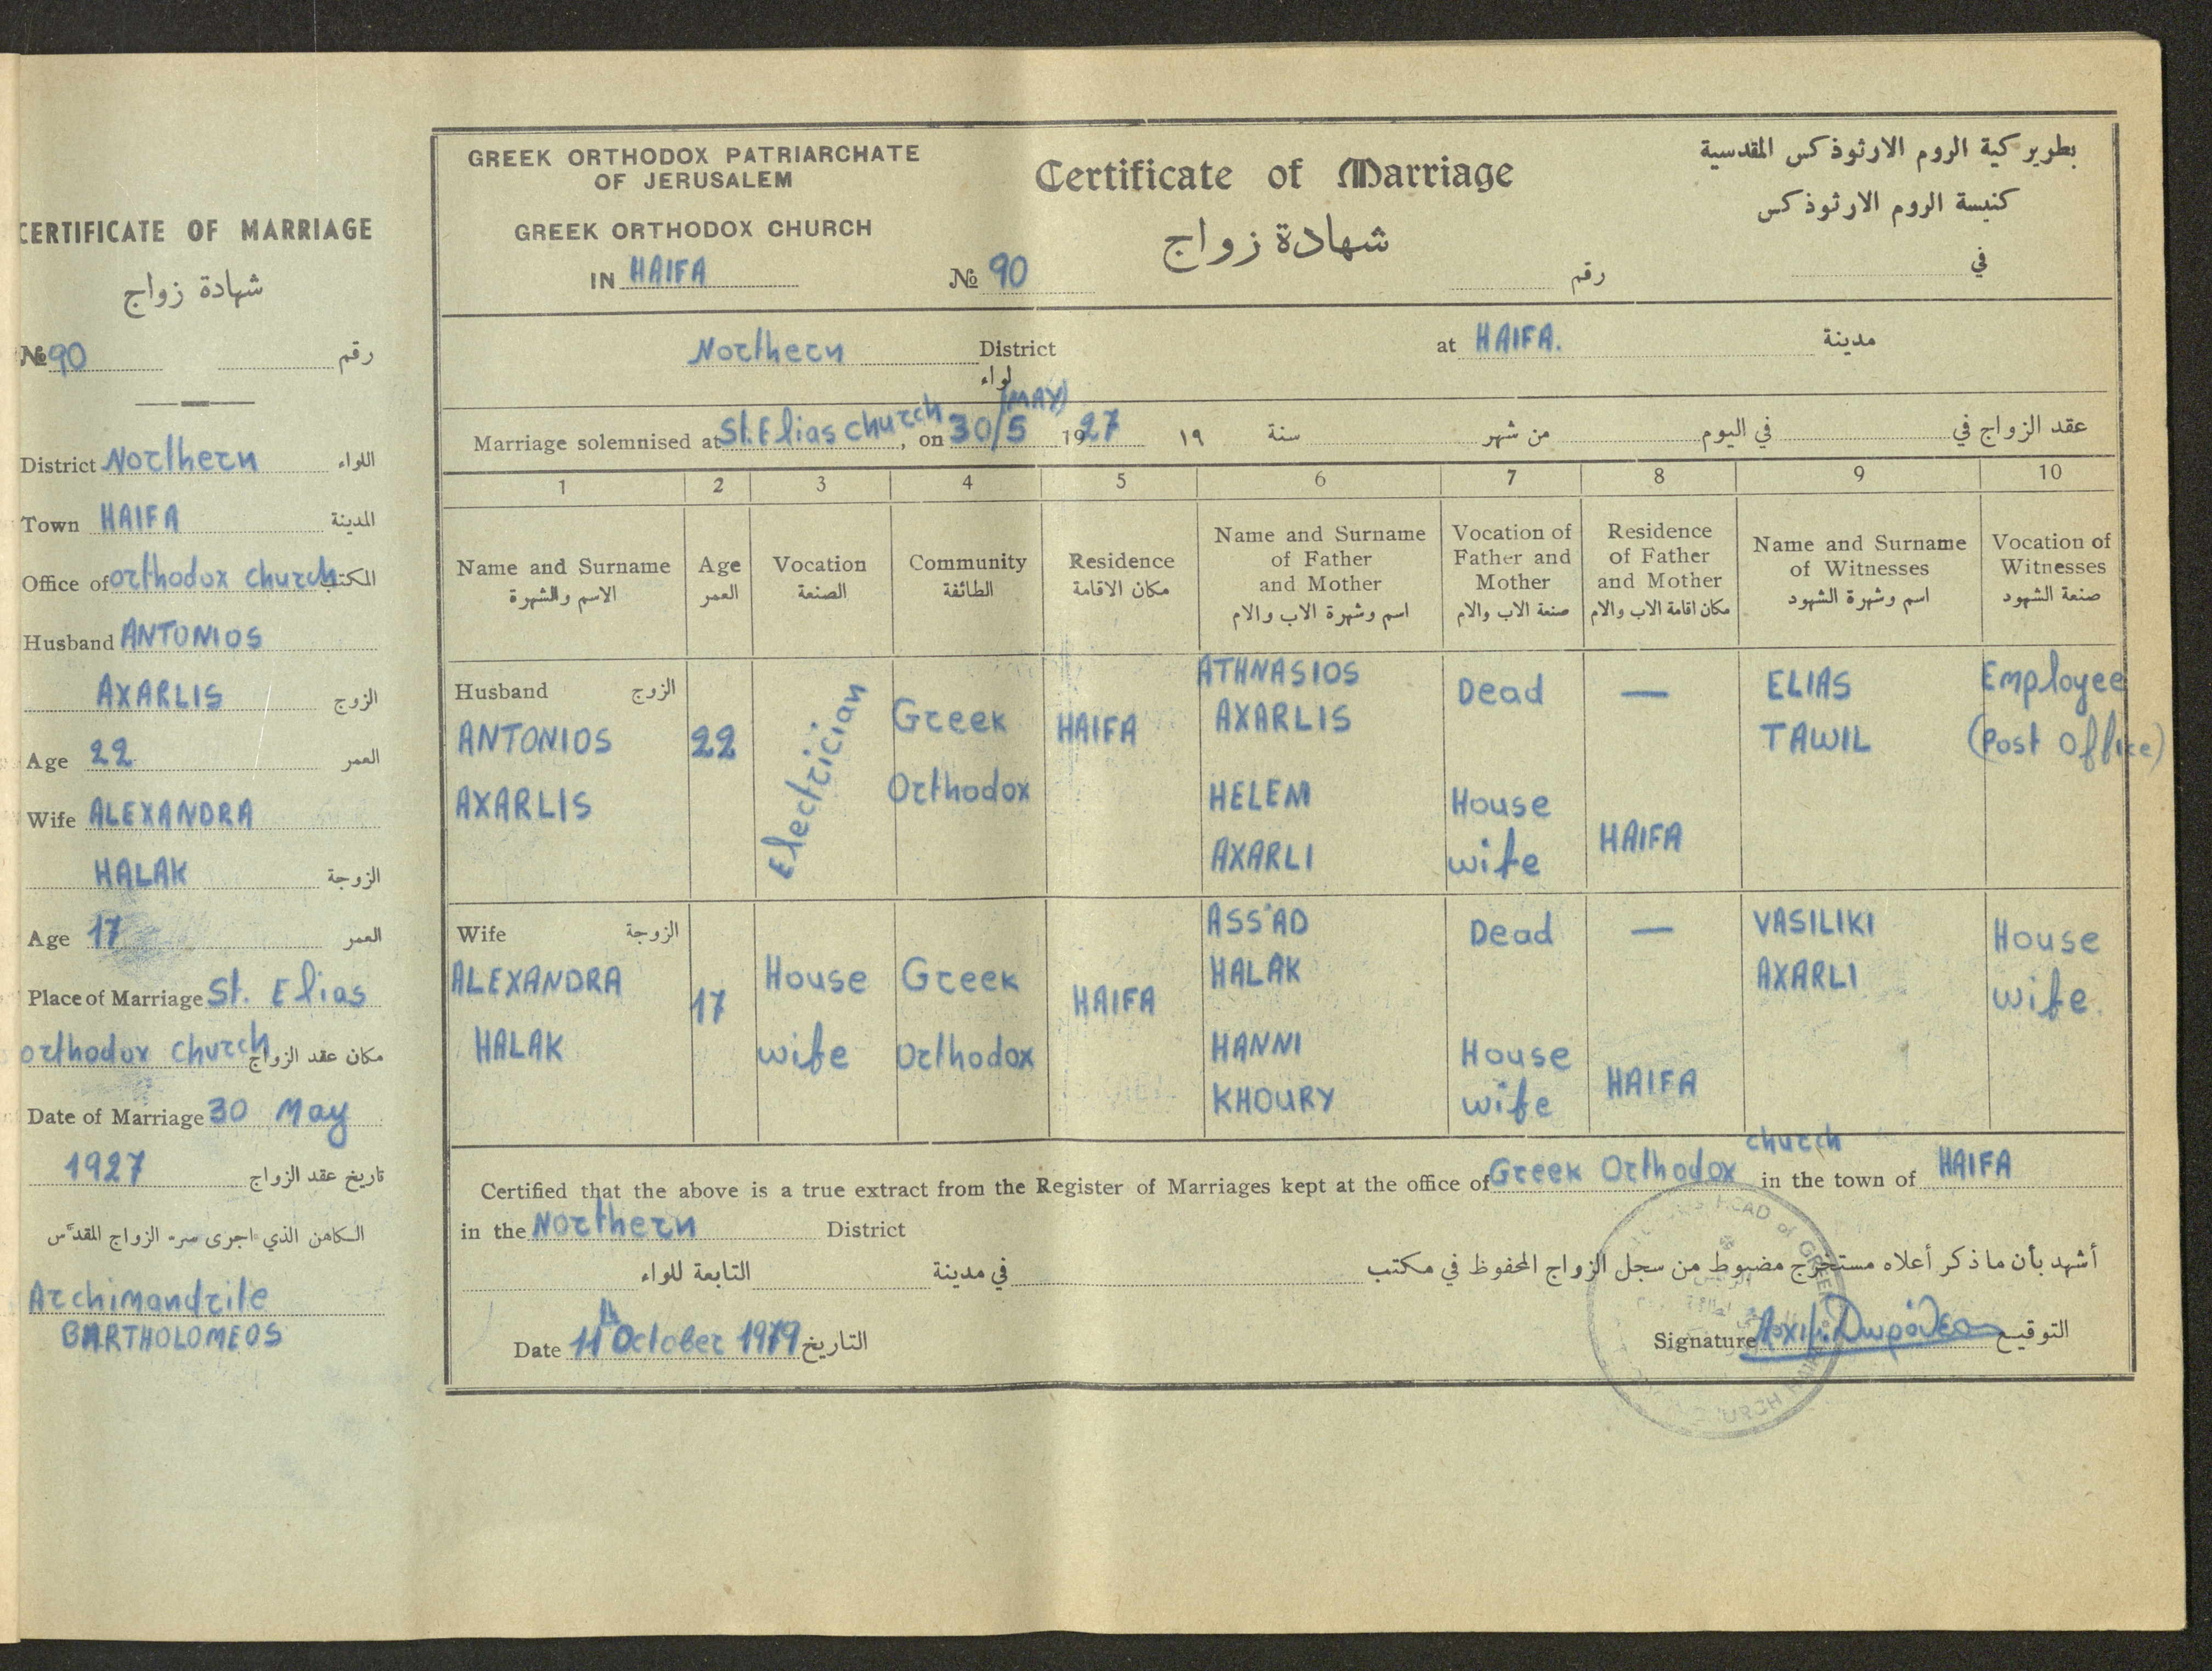 CERTIFICATE OF MARRIAGE
شهادة زواج
№ 90 رقم
District Northern اللواء
Town HAIFA المدينة
Office of orthodox church المكتب
Husband ANTONIOS
AXARLIS الزوج
Age 22 العمر
Wife ALEXANDRA
HALAK الزوجة
Age 17 العمر
Place of Marriage St. Elias
orthodox church مكان عقد الزواج
Date of Marriage 30 May
1927 تاريخ عقد الزواج
الكاهن الذي اجرى سر الزواج المقدّس
Archimandrite
BARTHOLOMEOS
GREEK ORTHODOX PATRIARCHATE
OF JERUSALEM
GREEK ORTHODOX CHURCH
IN HAIFA
№ 90
Certificate of Marriage
شهادة زواج
بطريركية الروم الارثوذكس المقدسية
كنيسة الروم الارثوذكس
في
رقم
Northern District
لواء
at HAIFA. مدينة
Marriage solemnised at St. Elias church, on 30/5 (MAY) 1927 ١٩ سنة من شهر في اليوم عقد الزواج في
1 2 3 4 5 6 7 8 9 10
Name and Surname
الاسم والشهرة
Age
العمر
Vocation
الصنعة
Community
الطائفة
Residence
مكان الاقامة
Name and Surname
of Father
and Mother
اسم وشهرة الاب والام
Vocation of
Father and
Mother
صنعة الاب والام
Residence
of Father
and Mother
مكان اقامة الاب والام
Name and Surname
of Witnesses
اسم وشهرة الشهود
Vocation of
Witnesses
صنعة الشهود
Husband الزوج
ANTONIOS
AXARLIS
22
Electrician
Greek
Orthodox
HAIFA
ATHNASIOS
AXARLIS
HELEM
AXARLI
Dead
House
wife
—
HAIFA
ELIAS
TAWIL
Employee
(Post Office)
Wife الزوجة
ALEXANDRA
HALAK
17
House
wife
Greek
Orthodox
HAIFA
ASS'AD
HALAK
HANNI
KHOURY
Dead
House
wife
—
HAIFA
VASILIKI
AXARLI
House
wife.
Certified that the above is a true extract from the Register of Marriages kept at the office of Greek Orthodox church in the town of HAIFA
in the Northern District
أشهد بأن ما ذكر أعلاه مستخرج مضبوط من سجل الزواج المحفوظ في مكتب في مدينة التابعة للواء
Date 11th October 1979 التاريخ
Signature Αρχιμ. Δωρόθεος التوقيع
HEAD of GREEK
CHURCH HAIFA